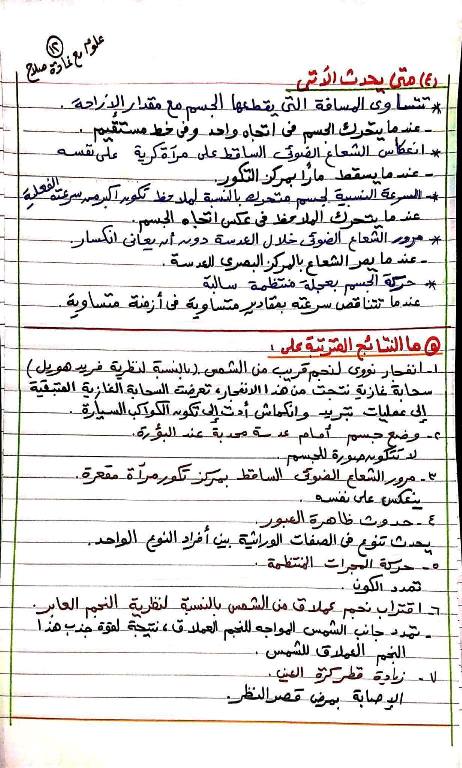 علوم مع غادة صلاح
١٢
(٤) متى يحدث الآتى
* تتساوى المسافة التى يقطعها الجسم مع مقدار الإزاحة.
- عندما يتحرك الجسم فى اتجاه واحد وفى خط مستقيم.
* انعكاس الشعاع الضوئى الساقط على مرآة كرية على نفسه
- عندما يسقط مارًا بمركز التكور.
* السرعة النسبية لجسم متحرك بالنسبة لملاحظ تكون أكبر من سرعته الفعلية
عندما يتحرك الملاحظ فى عكس اتجاه الجسم.
* مرور الشعاع الضوئى خلال العدسة دون أن يعانى انكسار.
- عندما يمر الشعاع بالمركز البصرى للعدسة.
* حركة الجسم بعجلة منتظمة سالبة
عندما تتناقص سرعته بمقادير متساوية فى أزمنة متساوية.
٥ ما النتائج المترتبة على:
١- انفجار نووى لنجم قريب من الشمس (بالنسبة لنظرية فريد هويل)
سحابة غازية نتجت من هذا الانفجار، تعرضت السحابة الغازية المتبقية
إلى عمليات تبريد وانكماش أدت إلى تكون الكواكب السيارة.
٢- وضع جسم أمام عدسة محدبة عند البؤرة.
لا تتكون صورة للجسم.
٣- مرور الشعاع الضوئى الساقط بمركز تكور مرآة مقعرة.
ينعكس على نفسه.
٤- حدوث ظاهرة العبور.
يحدث تنوع فى الصفات الوراثية بين أفراد النوع الواحد.
٥- حركة المجرات المنتظمة.
تمدد الكون.
٦- اقتراب نجم عملاق من الشمس بالنسبة لنظرية النجم العابر.
- تمدد جانب الشمس المواجه للنجم العملاق، نتيجة لقوة جذب هذا
النجم العملاق للشمس.
٧- زيادة قطر كرة العين.
الإصابة بمرض قصر النظر.